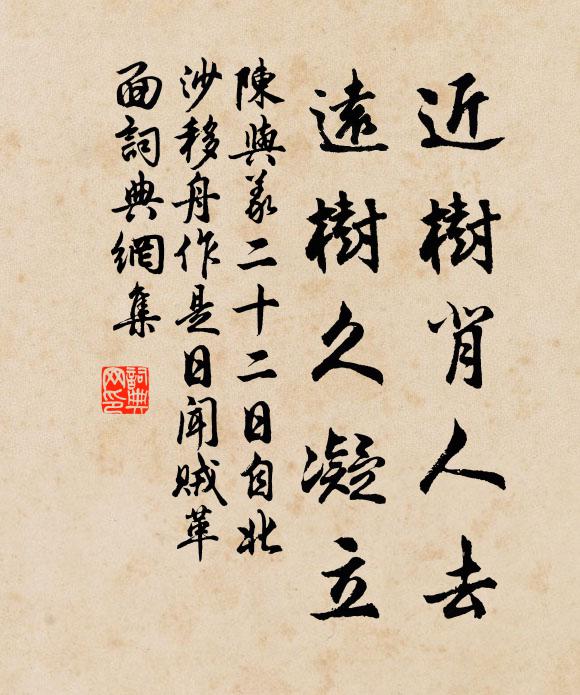 近樹背人去
遠樹久凝立
陳與義二十二日自北
沙移舟作是日聞賊革
面詞典網集
詞典網印